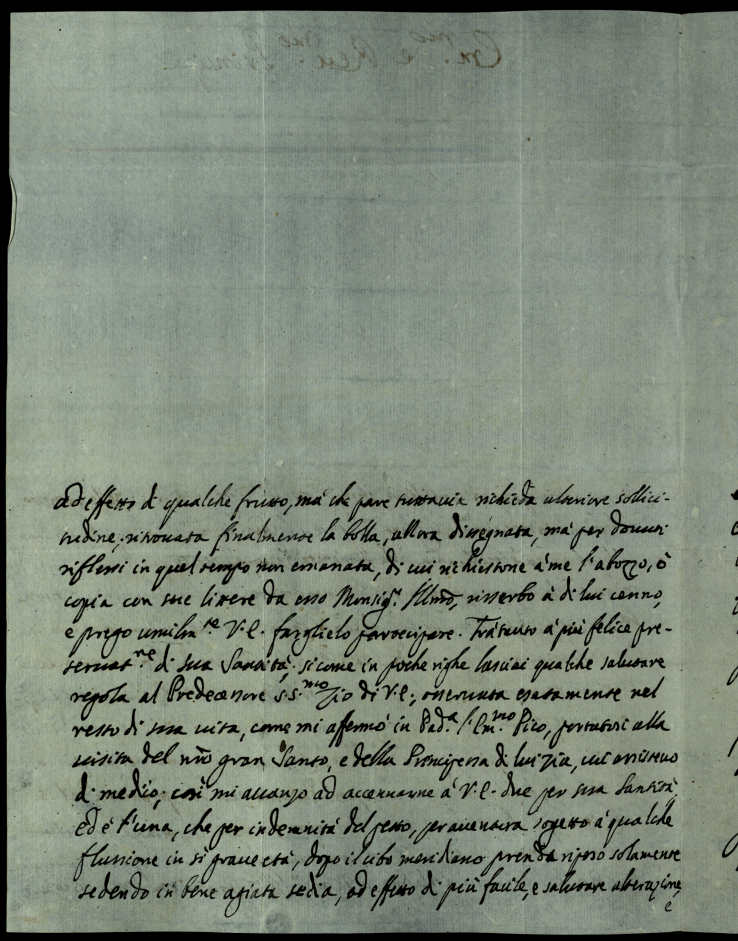 ad effetto di qualche frutto, mà che pare tuttavia richieda ulteriore solleci-
tudine; ritrovata finalmente la bolla, allora dissegnata, mà per dovuti
riflessi in quel tempo non emanata, di cui richiestone à me l'abozzo, ò
copia con sue littere da esso Monsig.r Illmo, risserbo à di lui cenno,
e prego umilm.te V.E. farglielo partecipare. Trattanto à più felice pre-
servat.ne di sua Santità; sicome in poche righe lasciai qualche salutare
regola al Predecessore S.S.mo Zio di V.E.; osservata esatamente nel
resto di sua vita, come mi affermò in Pad.a l'Em.mo Pico, portatosi alla
visita del nro gran Santo, e della Principessa di lui Zia, cui assistevo
di medico; così mi avanzo ad accennarne à V.E. due per sua Santità,
ed è l'una, che per indemnità del petto, per aventura sogetto à qualche
flussione in sì grave età, dopo il cibo meridiano prenda riposo solamente
sedendo in bene agiata sedia, ad effetto di più facile, e salutare alterazione,
e